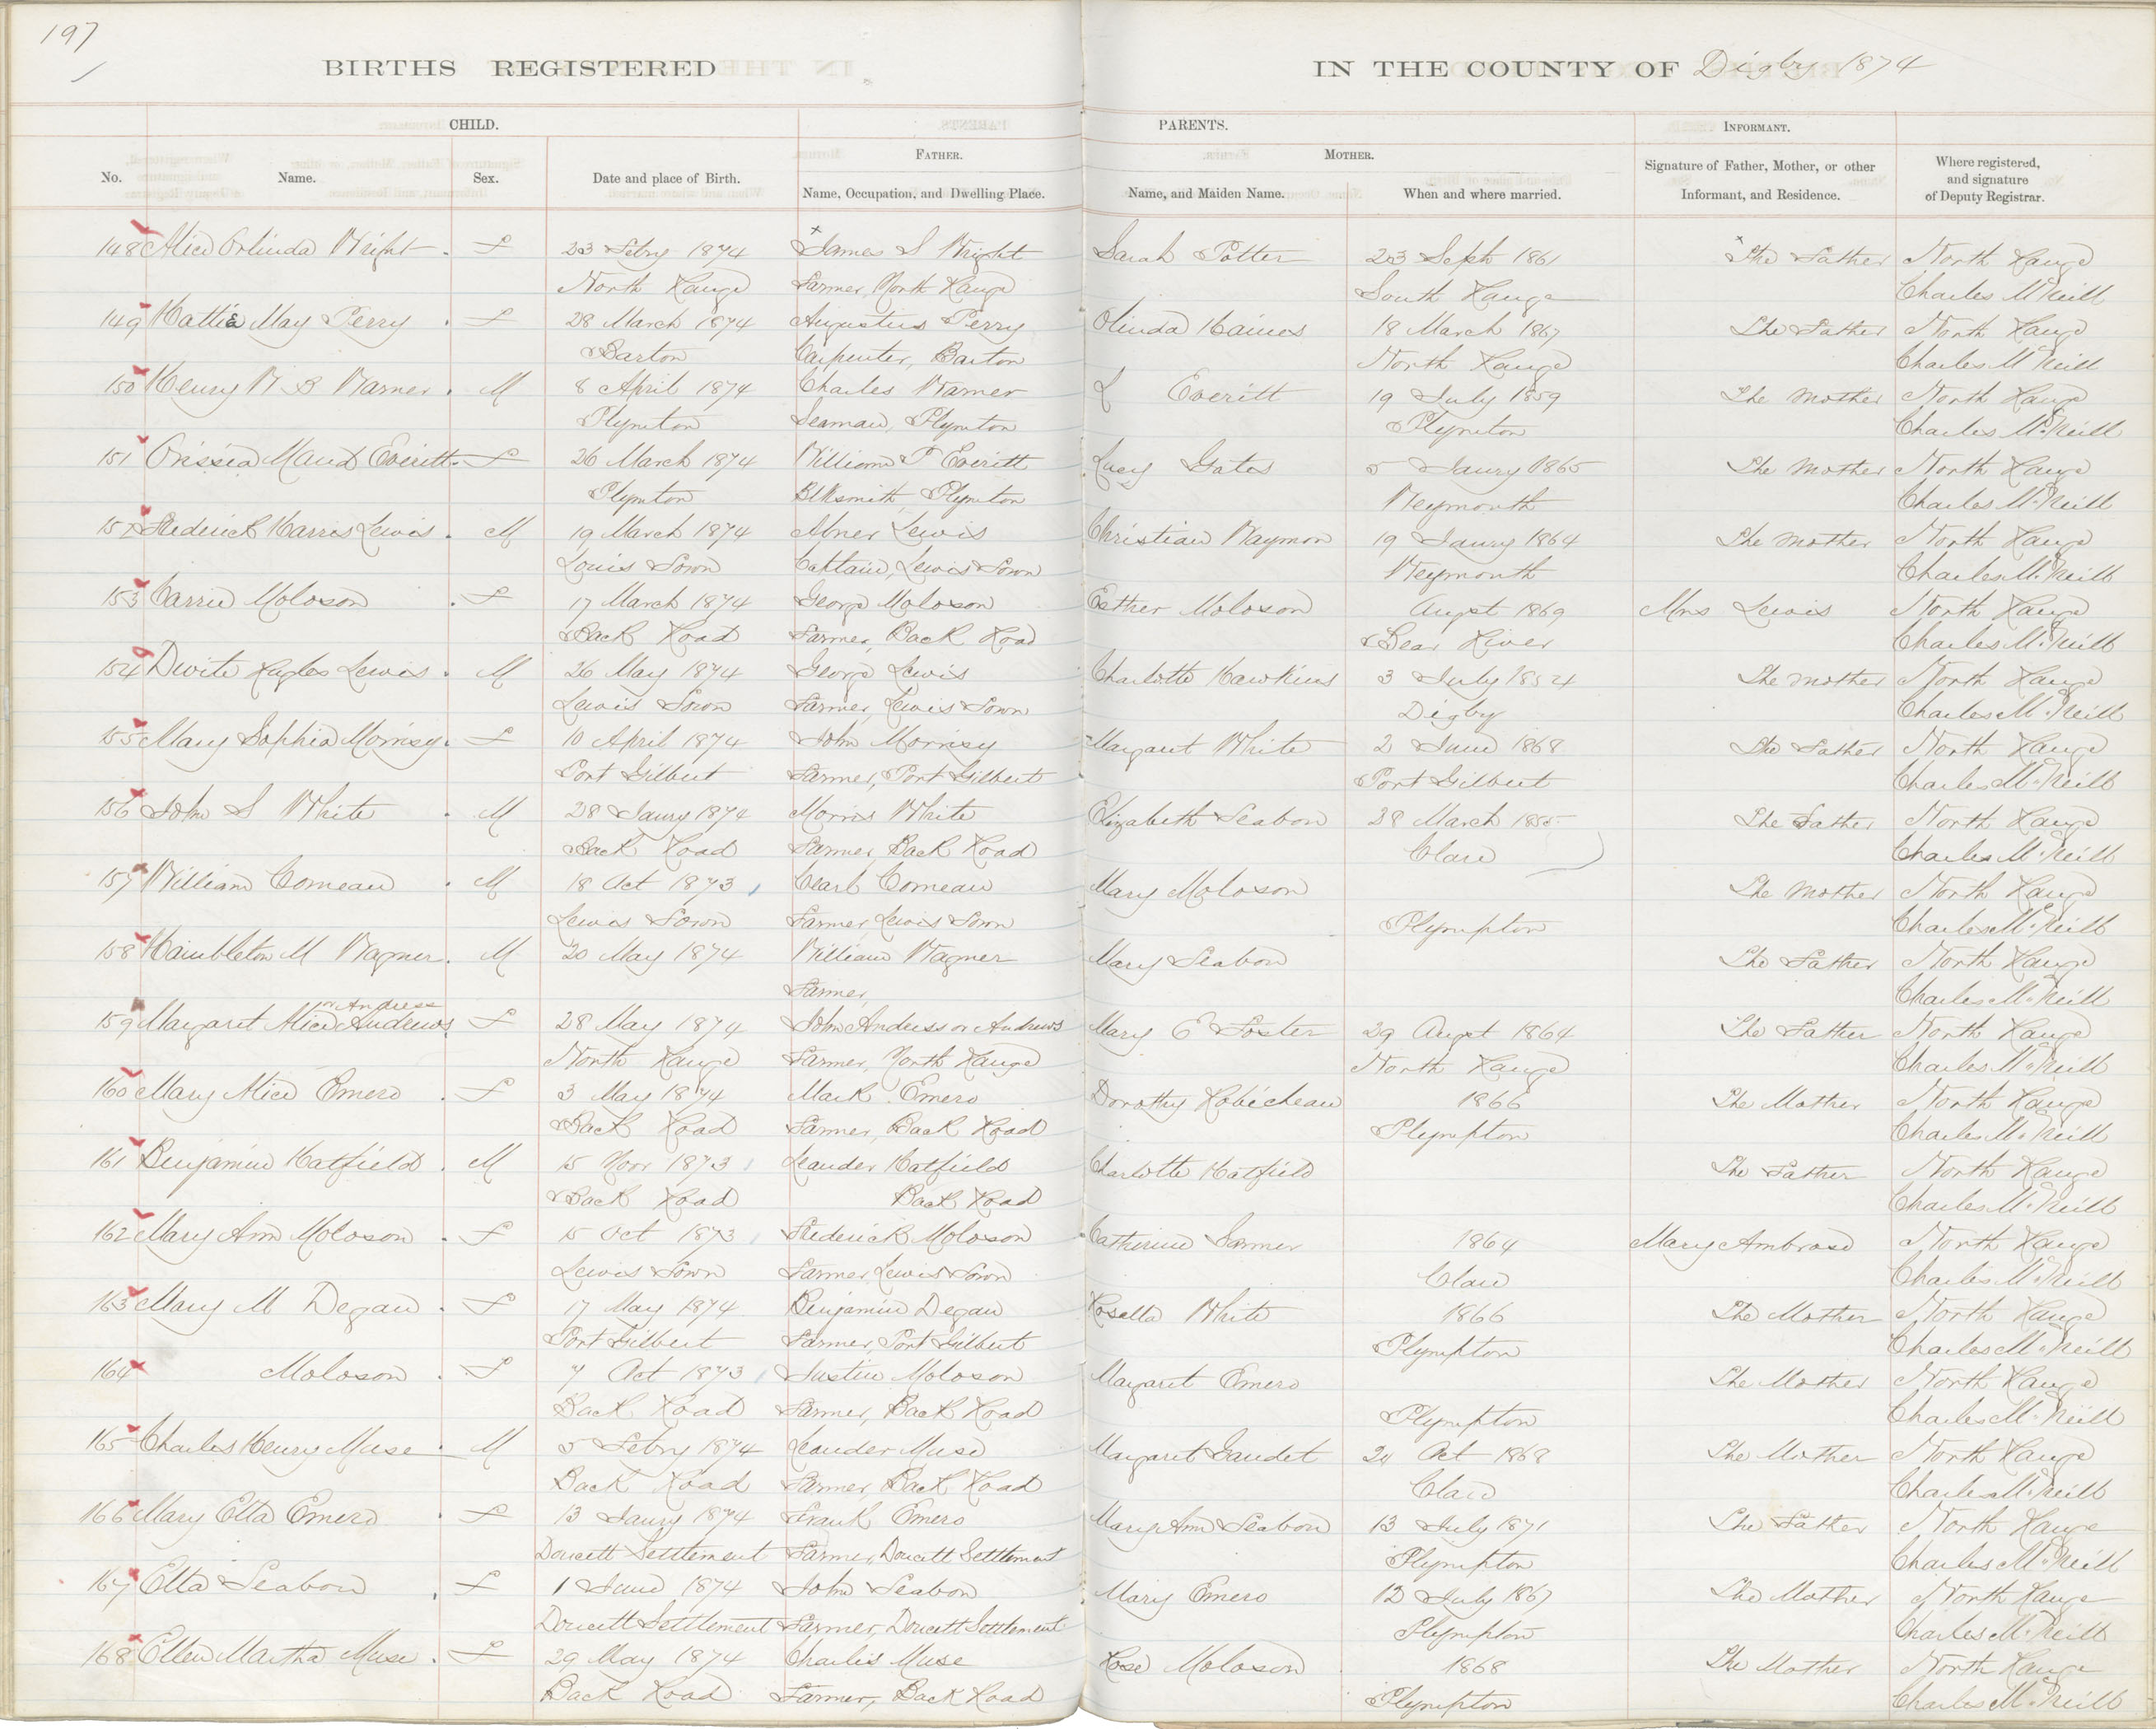 197
BIRTHS REGISTERED IN THE COUNTY OF Digby 1874
CHILD. PARENTS. INFORMANT.
FATHER. MOTHER.
No. Name. Sex. Date and place of Birth. Name, Occupation, and Dwelling Place. Name, and Maiden Name. When and where married. Signature of Father, Mother, or other Informant, and Residence. Where registered, and signature of Deputy Registrar.
148 Alice Orlinda Wright F 23 Febry 1874 James S Wright Sarah Potter 23 Sept 1861 The Father North Range
North Range Farmer, North Range South Range Charles McNeill
149 Hattie May Perry F 28 March 1874 Augustus Perry Olinda Haines 18 March 1867 The Father North Range
Barton Carpenter, Barton North Range Charles McNeill
150 Henry W B Warner M 8 April 1874 Charles Warner L Everitt 19 July 1859 The Mother North Range
Plymton Seaman, Plymton Plymton Charles McNeill
151 Maud Everitt F 26 March 1874 William T Everitt Lucy Gates 5 Jany 1865 The Mother North Range
Plymton Blksmith, Plymton Weymouth Charles McNeill
152 Frederick Harris Lewis M 19 March 1874 Abner Lewis Christian Waymon 19 Jany 1864 The Mother North Range
Louis Town Captain, Lewis Town Weymouth Charles McNeill
153 Carrie Moloson F 17 March 1874 George Moloson Esther Moloson Augst 1869 Mrs Lewis North Range
Back Road Farmer, Back Road Bear River Charles McNeill
154 Dwite Lewis M 26 May 1874 George Lewis Charlotte Hawkins 3 July 1854 The Mother North Range
Lewis Town Farmer, Lewis Town Digby Charles McNeill
155 Mary Sophia Morrisy F 10 April 1874 John Morrisy Margaret White 2 June 1868 The Father North Range
Port Gilbert Farmer, Port Gilbert Port Gilbert Charles McNeill
156 John S White M 28 Jany 1874 Morris White Elizabeth Seabon 28 March 1855 The Father North Range
Back Road Farmer, Back Road Clare Charles McNeill
157 William Comeau M 18 Oct 1873 Charl Comeau Mary Moloson The Mother North Range
Lewis Town Farmer Lewis Town Plympton Charles McNeill
158 Hambleton M Wagner M 20 May 1874 William Wagner Mary Seabon The Father North Range
Farmer, Charles McNeill
or Andress
159 Margaret Alice Andrews F 28 May 1874 John Andress or Andrews Mary E Foster 29 Augst 1864 The Father North Range
North Range Farmer, North Range North Range Charles McNeill
160 Mary Alice Emero F 3 May 1874 Mark Emero Dorothy Robicheau 1866 The Mother North Range
Back Road Farmer, Back Road Plympton Charles McNeill
161 Benjamin Hatfield M 15 Novr 1873 Leander Hatfield Charlotte Hatfield The Father North Range
Back Road Back Road Charles McNeill
162 Mary Ann Moloson F 15 Oct 1873 Frederick Moloson Catherine Farmer 1864 Mary Ambrose North Range
Lewis Town Farmer, Lewis Town Clare Charles McNeill
163 Mary M Degan F 17 May 1874 Benjamin Degan Rosella White 1866 The Mother North Range
Port Gilbert Farmer, Port Gilbert Plympton Charles McNeill
164 Moloson F 7 Oct 1873 Justin Moloson Margaret Emero The Mother North Range
Back Road Farmer, Back Road Plympton Charles McNeill
165 Charles Henry Muse M 5 Febry 1874 Leander Muse Margaret Gaudet 20 Oct 1868 The Mother North Range
Back Road Farmer, Back Road Clare Charles McNeill
166 Mary Etta Emero F 13 Jany 1874 Frank Emero Mary Ann Seabon 13 July 1871 The Father North Range
Doucett Settlement Farmer, Doucett Settlement Plympton Charles McNeill
167 Etta Seabon F 1 June 1874 John Seabon Mary Emero 12 July 1867 The Mother North Range
Doucett Settlement Farmer, Doucett Settlement Plympton Charles McNeill
168 Ellen Martha Muse F 29 May 1874 Charles Muse Rose Moloson 1868 The Mother North Range
Back Road Farmer, Back Road Plympton Charles McNeill